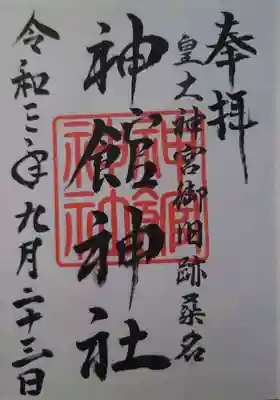 奉拝
皇大神宮御旧跡桑名
神館神社
令和三年九月二十三日
神館神社